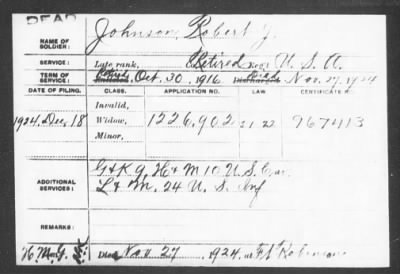 DEAD
NAME OF SOLDIER: Johnson, Robert J.
SERVICE: Late rank, Retired Reg't U. S. A.
TERM OF SERVICE: Oct. 30, 1916, Died Nov. 27, 1924
DATE OF FILING. CLASS. APPLICATION NO. LAW. CERTIFICATE NO.
Invalid,
1924, Dec, 18 Widow, 1226,902 22 967413
Minor,
ADDITIONAL SERVICES: G & K 9, H & M 10 U.S. Cav.
L & M. 24 U. S. Inf
REMARKS:
Died Nov 27, 1924, at Ft Robinson